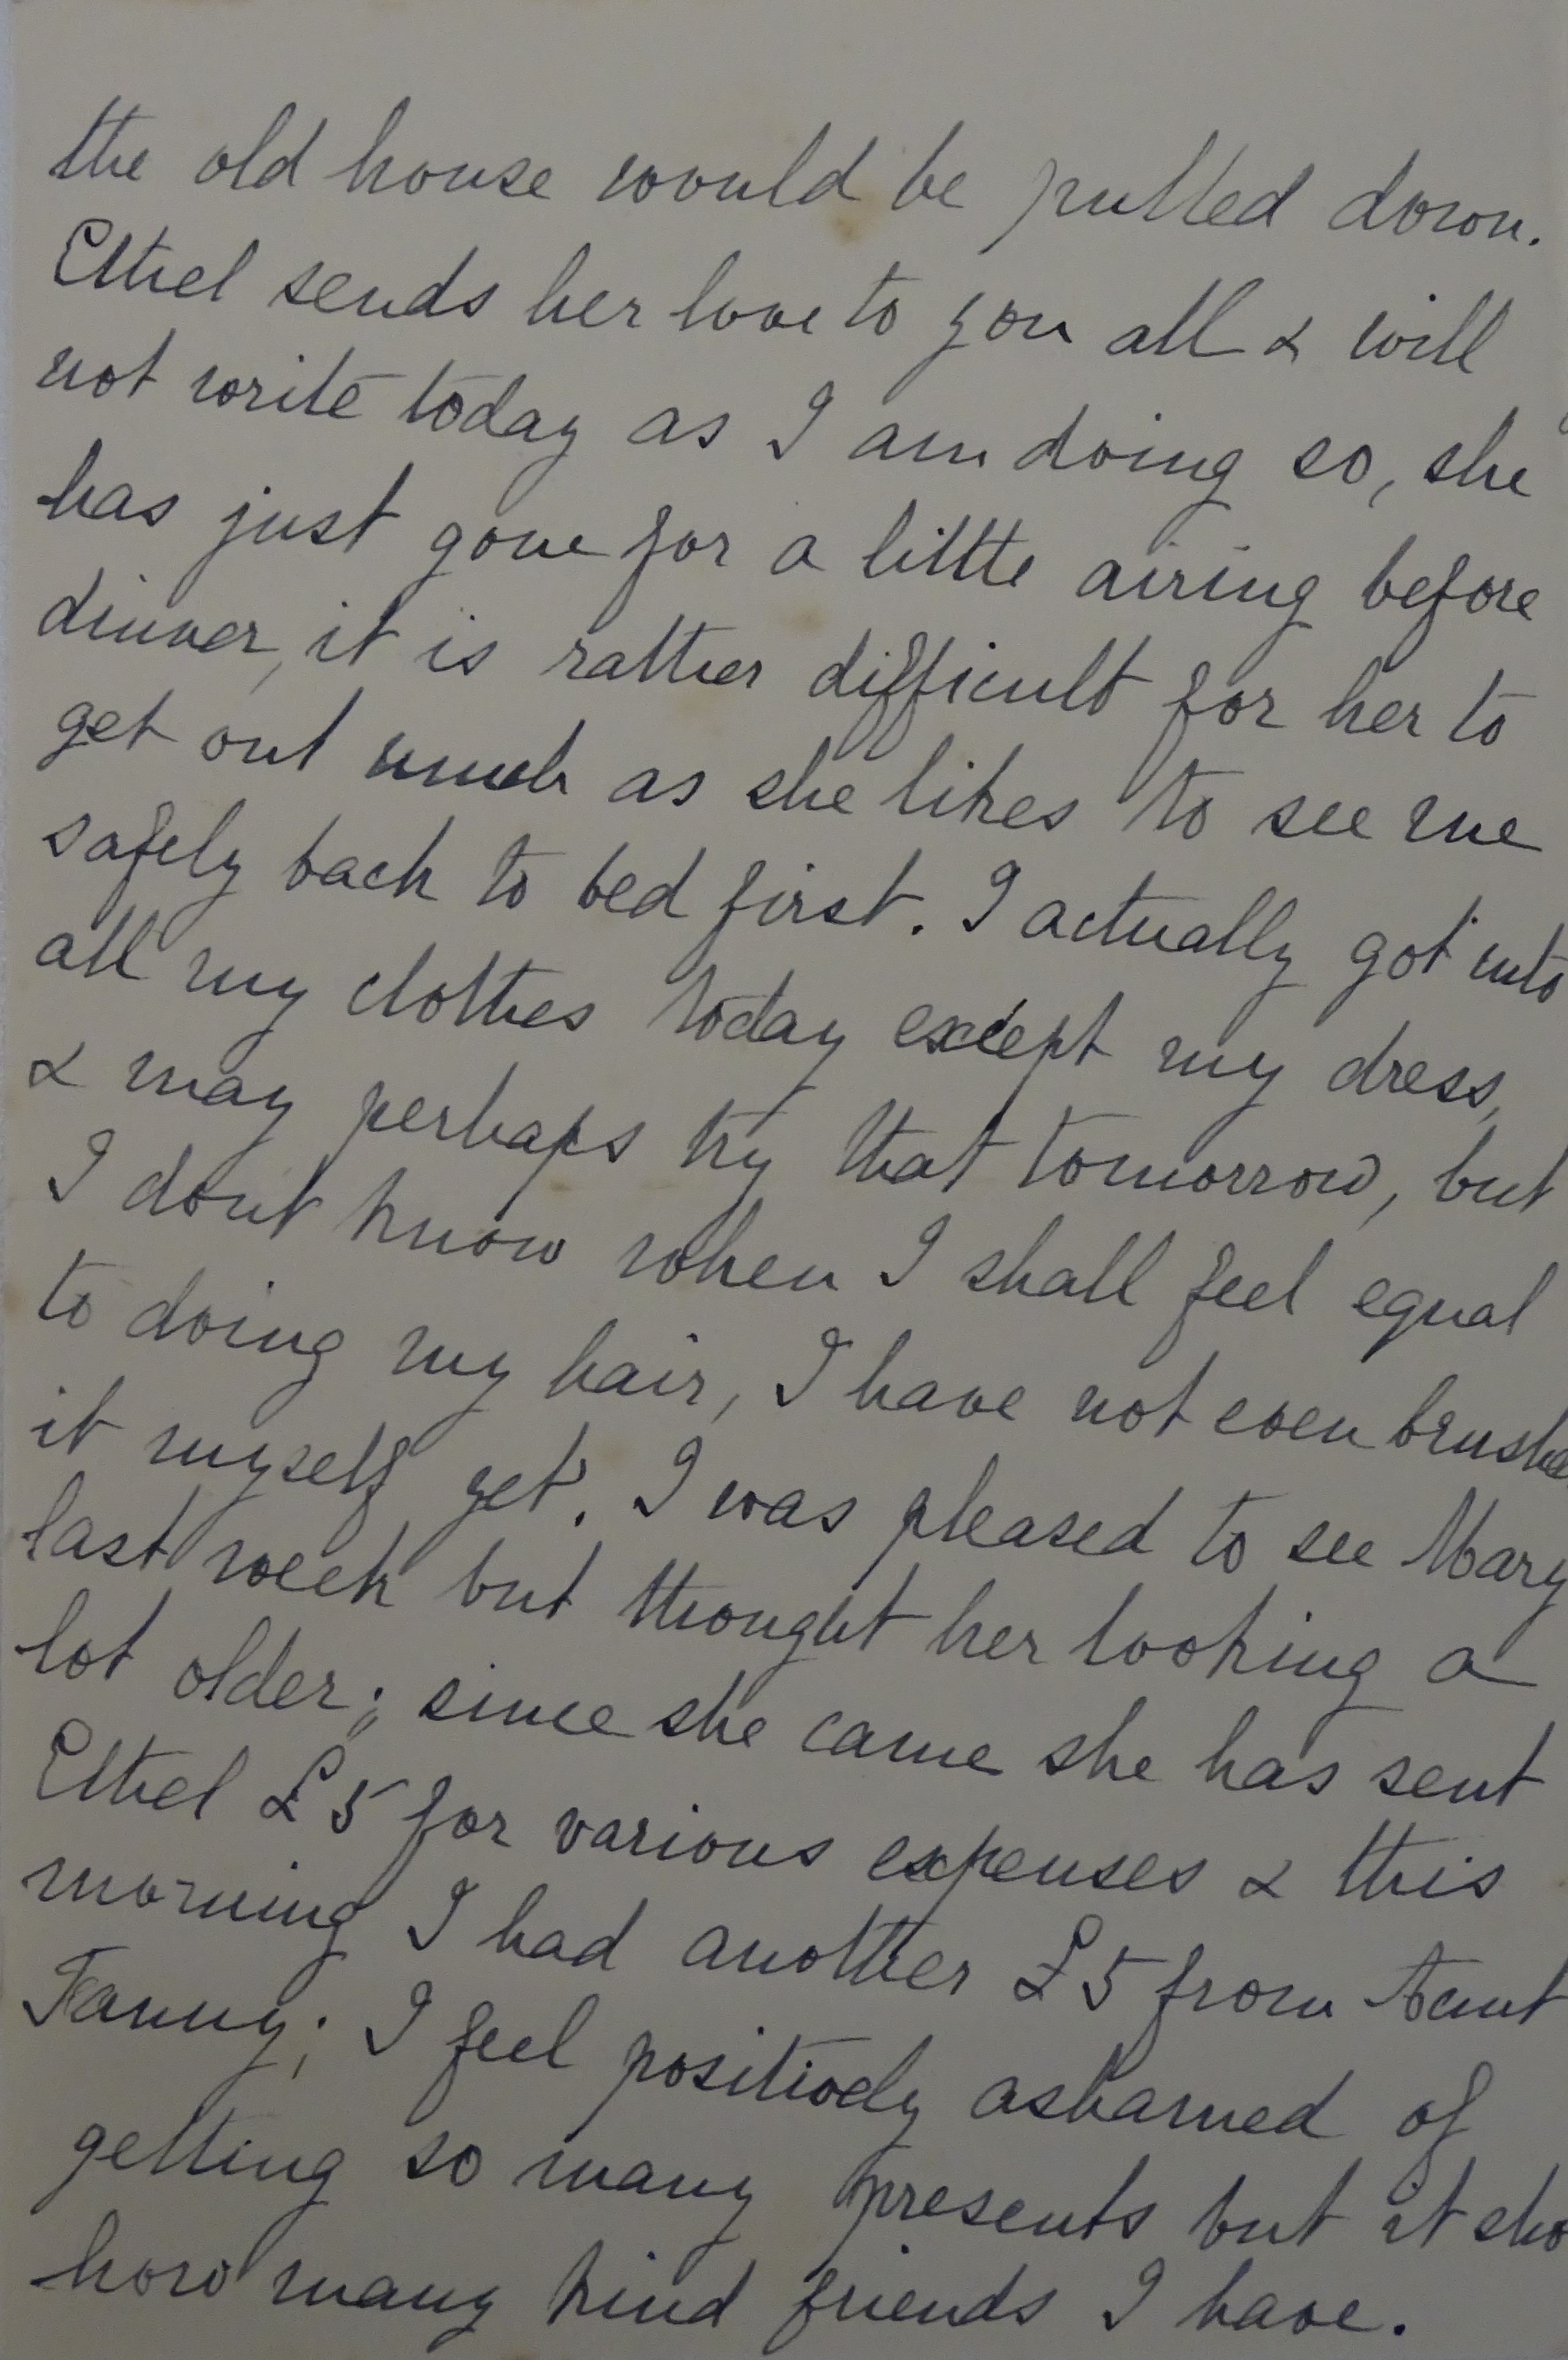 the old house would be pulled down.
Ethel sends her love to you all & will
not write today as I am doing so, she
has just gone for a little airing before
dinner, it is rather difficult for her to
get out much as she likes to see me
safely back to bed first. I actually got into
all my clothes today except my dress,
& may perhaps try that tomorrow, but
I dont know when I shall feel equal
to doing my hair, I have not even brushe
it myself yet. I was pleased to see Mary
last week but thought her looking a
lot older; since she came she has sent
Ethel £5 for various expenses & this
morning I had another £5 from Aunt
Fanny; I feel positively ashamed of
getting so many presents but it sho
how many kind friends I have.